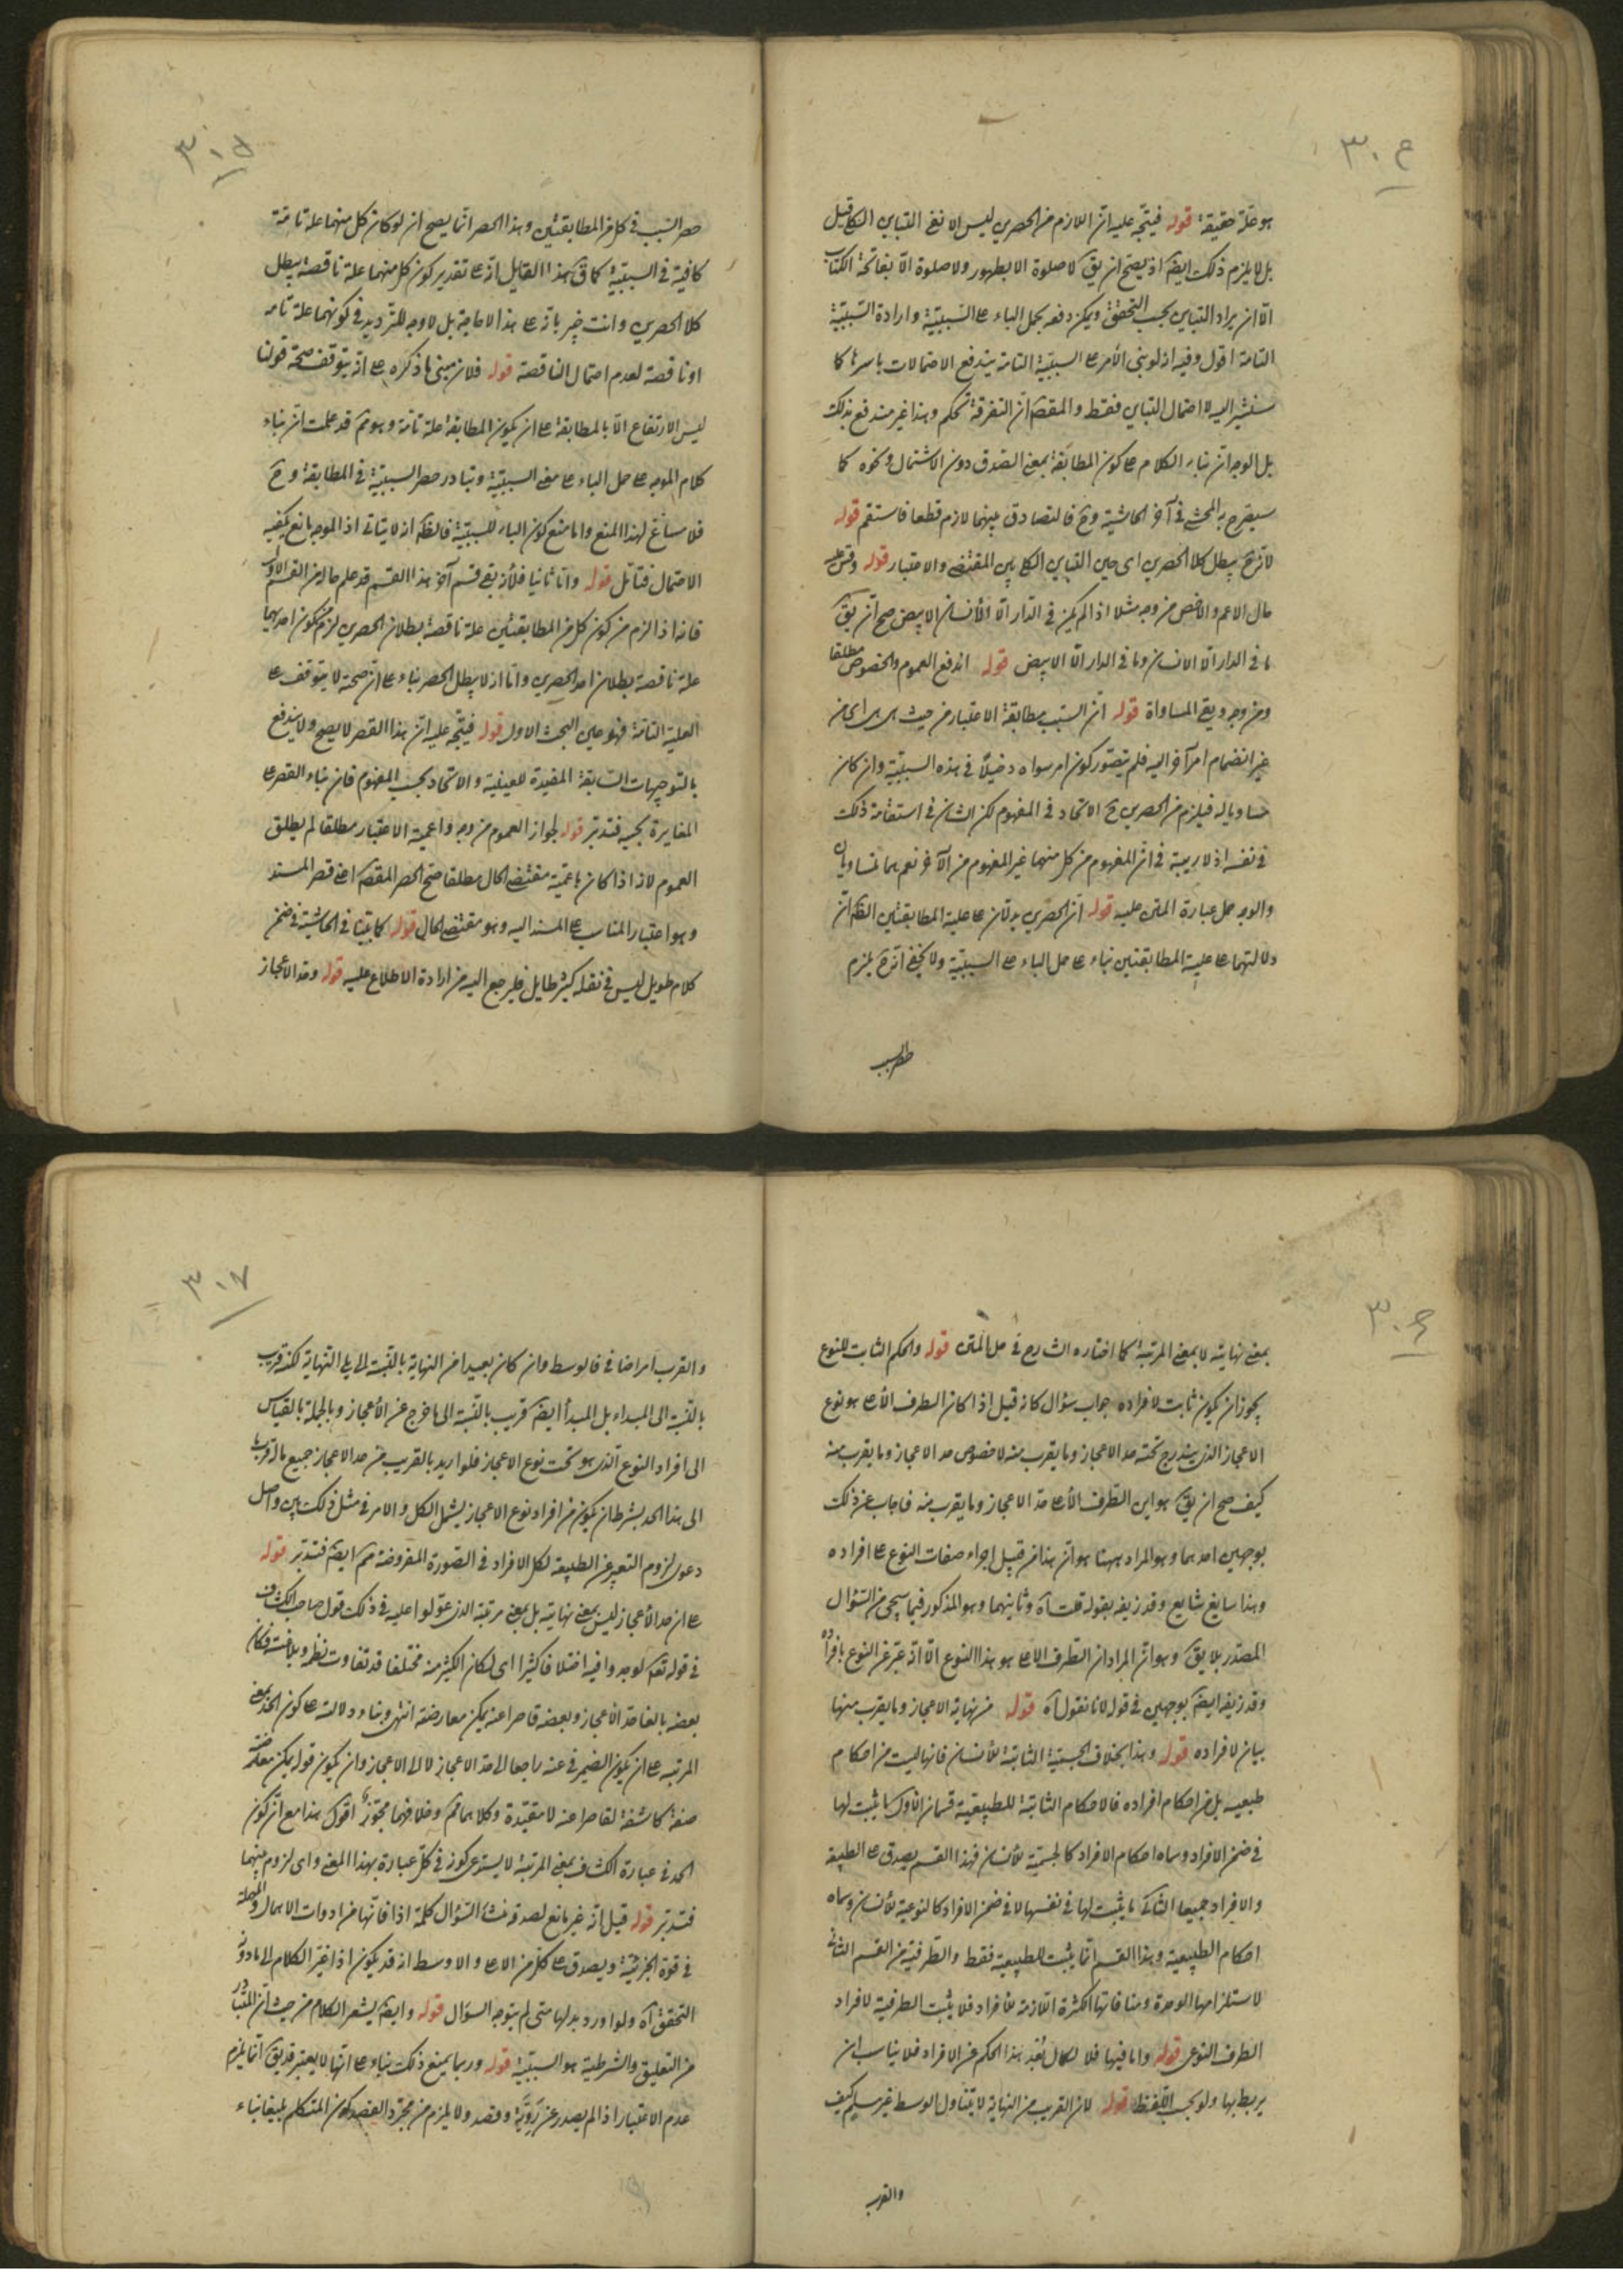 ٣٠٤
هو علة حقيقة قوله فيتجه عليه انّ اللازم من الحصرين ليس الا نفى التباين الكلى قيل
بل لا يلزم ذلك ايضا اذ يصح ان يق لا صلوة الا بطهور ولا صلوة الّا بفاتحة الكتاب
الّا ان يراد التباين بحسب التحقق ويمكن دفعه بحمل الباء على السّببيّة وارادة السّببيّة
التامة اقول وفيه انه لو بنى الأمر على السببيّة التامة يندفع الاحتمالات باسرها كما
سنشير اليه لا احتمال التباين فقط والمقصّ انّ التفرقة تحكم وهذا غير مندفع بذلك
بل الوجه ان بناء الكلام على كون المطابقة بمعنى الصدق دون الاشتمال ونحوه كما
سيصرح به المحشى فى آخر الحاشية وح فالتصادق بينهما لازم قطعا فاستقم قوله
لانه ح يبطل كلا الحصرين اى حين التباين الكلى بين المقتضى والاعتبار قوله وقس عليه
حال الاعم والاخص من وجه مثلا اذا لم يكن فى الدار الّا الأنسان الابيض صح ان يق
ما فى الدار الّا الانسان وما فى الدار الّا الابيض قوله اندفع العموم والخصوص مطلقا
ومن وجه وبقى المساواة قوله انّ السبب مطابقة الاعتبار من حيث هى هى اى من
غير انضمام امر آخر اليه فلم يتصور كون امر سواه دخيلا فى هذه السببيّة وان كان
مساويا له فيلزم من الحصرين ح الاتحاد فى المفهوم لكن الشان فى استقامة ذلك
فى نفسه اذ لا ريبة فى انّ المفهوم من كل منهما غير المفهوم من الآخر نعم هما متساويان
والوجه حمل عبارة المتن عليه قوله انّ الحصرين يدلان على علية المطابقتين الظ انّ
دلالتهما على علية المطابقتين بناء على حمل الباء على السببيّة ولا يخفى انه ح يلزم
حصر السبب
٣٠٥
حصر السّبب فى كل من المطابقتين وهذا الحصر انّما يصح ان لو كان كل منهما علة تامّة
كافية فى السببيّة كما قّ هذا القايل انّه على تقدير كون كل منهما علة ناقصة يبطل
كلا الحصرين وانت خبير بانّه على هذا لا حاجة بل لا وجه للترديد فى كونهما علة تامه
او ناقصة لعدم احتمال الناقصة قوله فلان مبنى ما ذكره على انّه يتوقف صحة قولنا
ليس الارتفاع الّا بالمطابقة على ان يكون المطابقة علة تامّة وهو مم قد علمت انّ بناء
كلام الموجه على حمل الباء على معنى السببيّة وتبادر حصر السببيّة فى المطابقة وح
فلا مساغ لهذا المنع واما منع كون الباء للسببيّة فالظ انه لا يتاتى اذ الموجه مانع يكفيه
الاحتمال فتأمّل قوله وامّا ثانيا فلأنه بقى قسم آخر هذا القسم قد علم حاله من القسم الاول
فانه اذا لزم من كون كل من المطابقتين علة ناقصة بطلان الحصرين لزم من كون احديهما
علة ناقصة بطلان احد الحصرين وامّا انه لا يبطل الحصر بناء على انّ صحته لا يتوقف على
العلية التامّة فهو عين البحث الاول قوله فيتّجه عليه انّ هذا القصر لا يصح ولا يندفع
بالتوجيهات السّابقة المفيدة للعينية والاتحاد بحسب المفهوم فان بناء القصر على
المغايرة بحسبه فتدبّر قوله لجواز العموم من وجه واعمية الاعتبار مطلقا لم يطلق
العموم لانه اذا كان باعميّة مقتضى الحال مطلقا صح الحصر المقصّ اعنى قصر المسند
وهو اعتبار المناسب على المسند اليه وهو مقتضى الحال قوله كما بيّنا فى الحاشية فى ضمن
كلام طويل ليس فى نقله كثير طايل فليرجع اليه من ارادة الاطلاع عليه قوله وحد الأعجاز
٣٠٦
بمعنى نهايته لا بمعنى المرتبة كما اختاره الشارح فى حل المتن قوله والحكم الثابت للنوع
يجوز ان يكون ثابت لافراده جواب سؤال كانه قيل اذا كان الطرف الأعلى هو نوع
الاعجاز الذى يندرج تحته حد الاعجاز وما يقرب منه لا خصوص حد الاعجاز وما يقرب منه
كيف صح ان يق هو اى الطرف الأعلى حدّ الاعجاز وما يقرب منه فاجاب عن ذلك
بوجهين احدهما وهو المراد ههنا هو انّ هذا من قبيل اجراء صفات النوع على افراده
وهذا سايغ شايع وقد زيفه بقوله قلت آه وثانيهما وهو المذكور فيما سيجىء من السّؤال
المصدّر بلا يق وهو انّ المراد ان الطّرف الاعلى هو هذا النوع الّا انّه عبّر عن النوع بافراده
وقد زيفه ايضا بوجهين فى قوله لانا نقول آه قوله من نهاية الاعجاز وما يقرب منها
بيان لافراده قوله وهذا بخلاف الجسميّة الثابتة للأنسان فانها ليست من احكام
طبعيه بل من احكام افراده فالاحكام الثابتة للطبيعيّة قسمان الأول ما يثبت لها
فى ضمن الافراد وسماه احكام الافراد كالجسميّة للأنسان فهذا القسم يصدق على الطبيعه
والافراد جميعا الثّانى ما يثبت لها فى نفسها لا فى ضمن الافراد كالنوعية للأنسان وسماه
احكام الطبيعية وهذا القسم انّما يثبت للطبيعية فقط والطرفية من القسم الثانى
لاستلزامها الوحدة ومنافاتها الكثرة اللّازمة للأفراد فلا يثبت الطرفية لافراد
الطرف النوعى قوله واما فيها فلا لكمال بُعْد هذا الحكم عن الافراد فلا يناسب ان
يربط بها ولو بحسب اللّفظ قوله لان القريب من النهاية لا يتناول الوسط غير مسلم كيف
والقرب
٣٠٧
والقرب امر اضافى فالوسط وان كان بعيدا من النهاية بالنّسبة الى ما يلى النّهاية لكنه قريب
بالنّسبة الى المبداء بل المبدأ ايضا قريب بالنّسبة الى ما خرج عن الأعجاز وبالجملة بالقياس
الى افراد النوع الّذى هو تحت نوع الاعجاز فلو اريد بالقريب من حد الاعجاز جميع ماله قرب ما
الى هذا الحد بشرط ان يكون من افراد نوع الاعجاز يشمل الكل والامر فى مثل ذلك بين واصل
دعوى لزوم التعبير عن الطبيعة لكل الافراد فى الصّورة المفروضة مم ايضا فتدبّر قوله
على ان حد الأعجاز ليس بمعنى نهايته بل بمعنى مرتبة الذى عوّلوا عليه فى ذلك قول صاحب الكشاف
فى قوله تعم لوجدوا فيه اختلافا كثيرا اى لكان الكثير منه مختلفا قد تفاوت نظمه وبلاغته فكان
بعضه بالغا حدّ الأعجاز وبعضه قاصرا عنه يمكن معارضته انتهى وبناء دلالته على كون الحد بمعنى
المرتبه على ان يكون الضمير فى عنه راجعا الى حدّ الاعجاز لا الى الاعجاز وان يكون قوله يمكن معارضته
صفة كاشفة لقاصرا عنه لا مقيّدة وكلاهما مم وخلافهما مجوّز اقول هذا مع انّ كون
الحد فى عبارة الكشاف بمعنى المرتبة لا يستدعى كونه فى كل عبارة بهذا المعنى واى لزوم بينهما
فتدبّر قوله قيل انّه غير مانع لصدقه منشأ السّؤال كلمة اذا فانّها من ادوات الاهمال والمهملة
فى قوة الجزئيّة ويصدق على كل من الاعلى والاوسط انه قد يكون اذا غيّر الكلام الى ما دونه
التحقق آه ولو اورد بدلها متى لم يتوجه السوال قوله وايضا يشعر الكلام من حيث انّ المتبادر
من التعليق والشرطية هو السببيّة قوله وربما يمنع ذلك بناء على انّها لا يعتبر قد يق انّما يلزم
عدم الاعتبار اذا لم يصدر عن رَوِيَّة وقصد ولا يلزم من مجرّد القصد كون المتكلم بليغا بناء